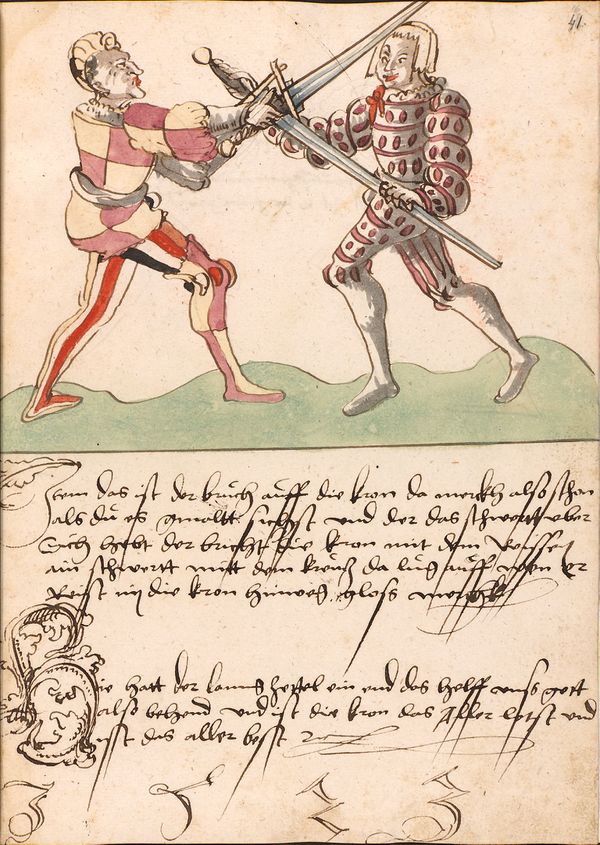 41.
Item das ist der bruch auff die kron da merckh also schon
als du es gmaltt siehst und der das schwertt uber
Sich hebt der bricht die kron mit dem
ain schwertt mitt dem kreütz da lug auff wen er
Reist in die kron hinweg. gloss merckh
Hie hatt der lanng zettel ein end das helff unss gott
also behend und ist die kron das aller letst und
ist das aller best